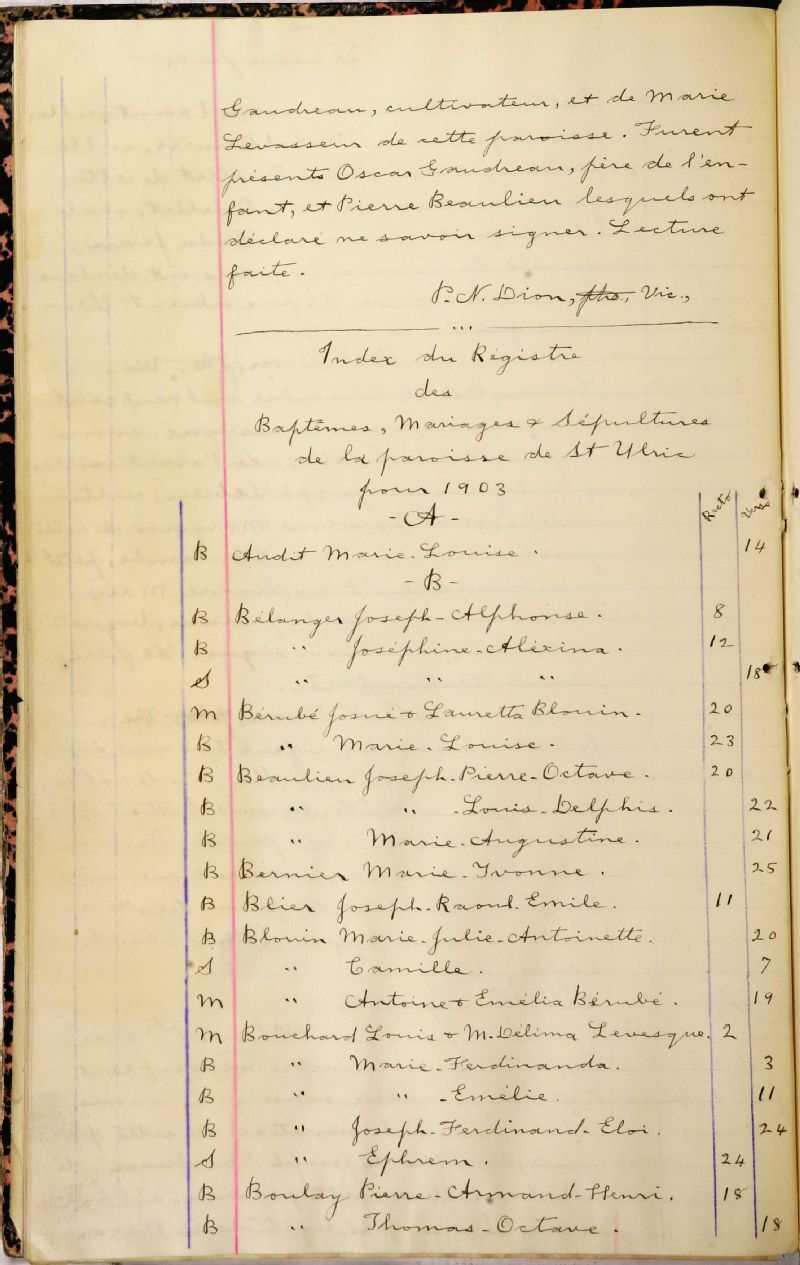 Gaudreau, cultivateur, et de Marie
Levasseur de cette paroisse. Furent
présents Oscar Gaudreau, père de l'en-
fant, et Pierre Beaulieu lesquels ont
déclaré ne savoir signer. Lecture
faite.
P. N. Dion, ptre, Vic.,
Index du Régistre
des
Baptêmes, Mariages & Sépultures
de la paroisse de St Ulric
pour 1903
Recto Verso
- A -
B Audit Marie-Louise. 14
- B -
B Bélanger Joseph-Alphonse. 8
B " Joséphine-Aléxina. 12
S " " " 18
M Bérubé Josué & Lauretta Blouin. 20
B " Marie-Louise. 23
B Beaulieu Joseph-Pierre-Octave. 20
B " " -Louis-Delphis. 22
B " Marie-Augustine. 21
B Bernier Marie-Yvonne. 25
B Blier Joseph-Raoul-Emile. 11
B Blouin Marie-Julie-Antoinette. 20
S " Camille. 7
M " Antoine & Emélia Bérubé. 19
M Bouchard Louis & M.Délima Levesque. 2
B " Marie-Ferdinanda. 3
B " " -Emélie. 11
B " Joseph-Ferdinand-Eloi. 24
S " Ephrem. 24
B Boulay Pierre-Armand-Henri. 18
B " Thomas-Octave. 18